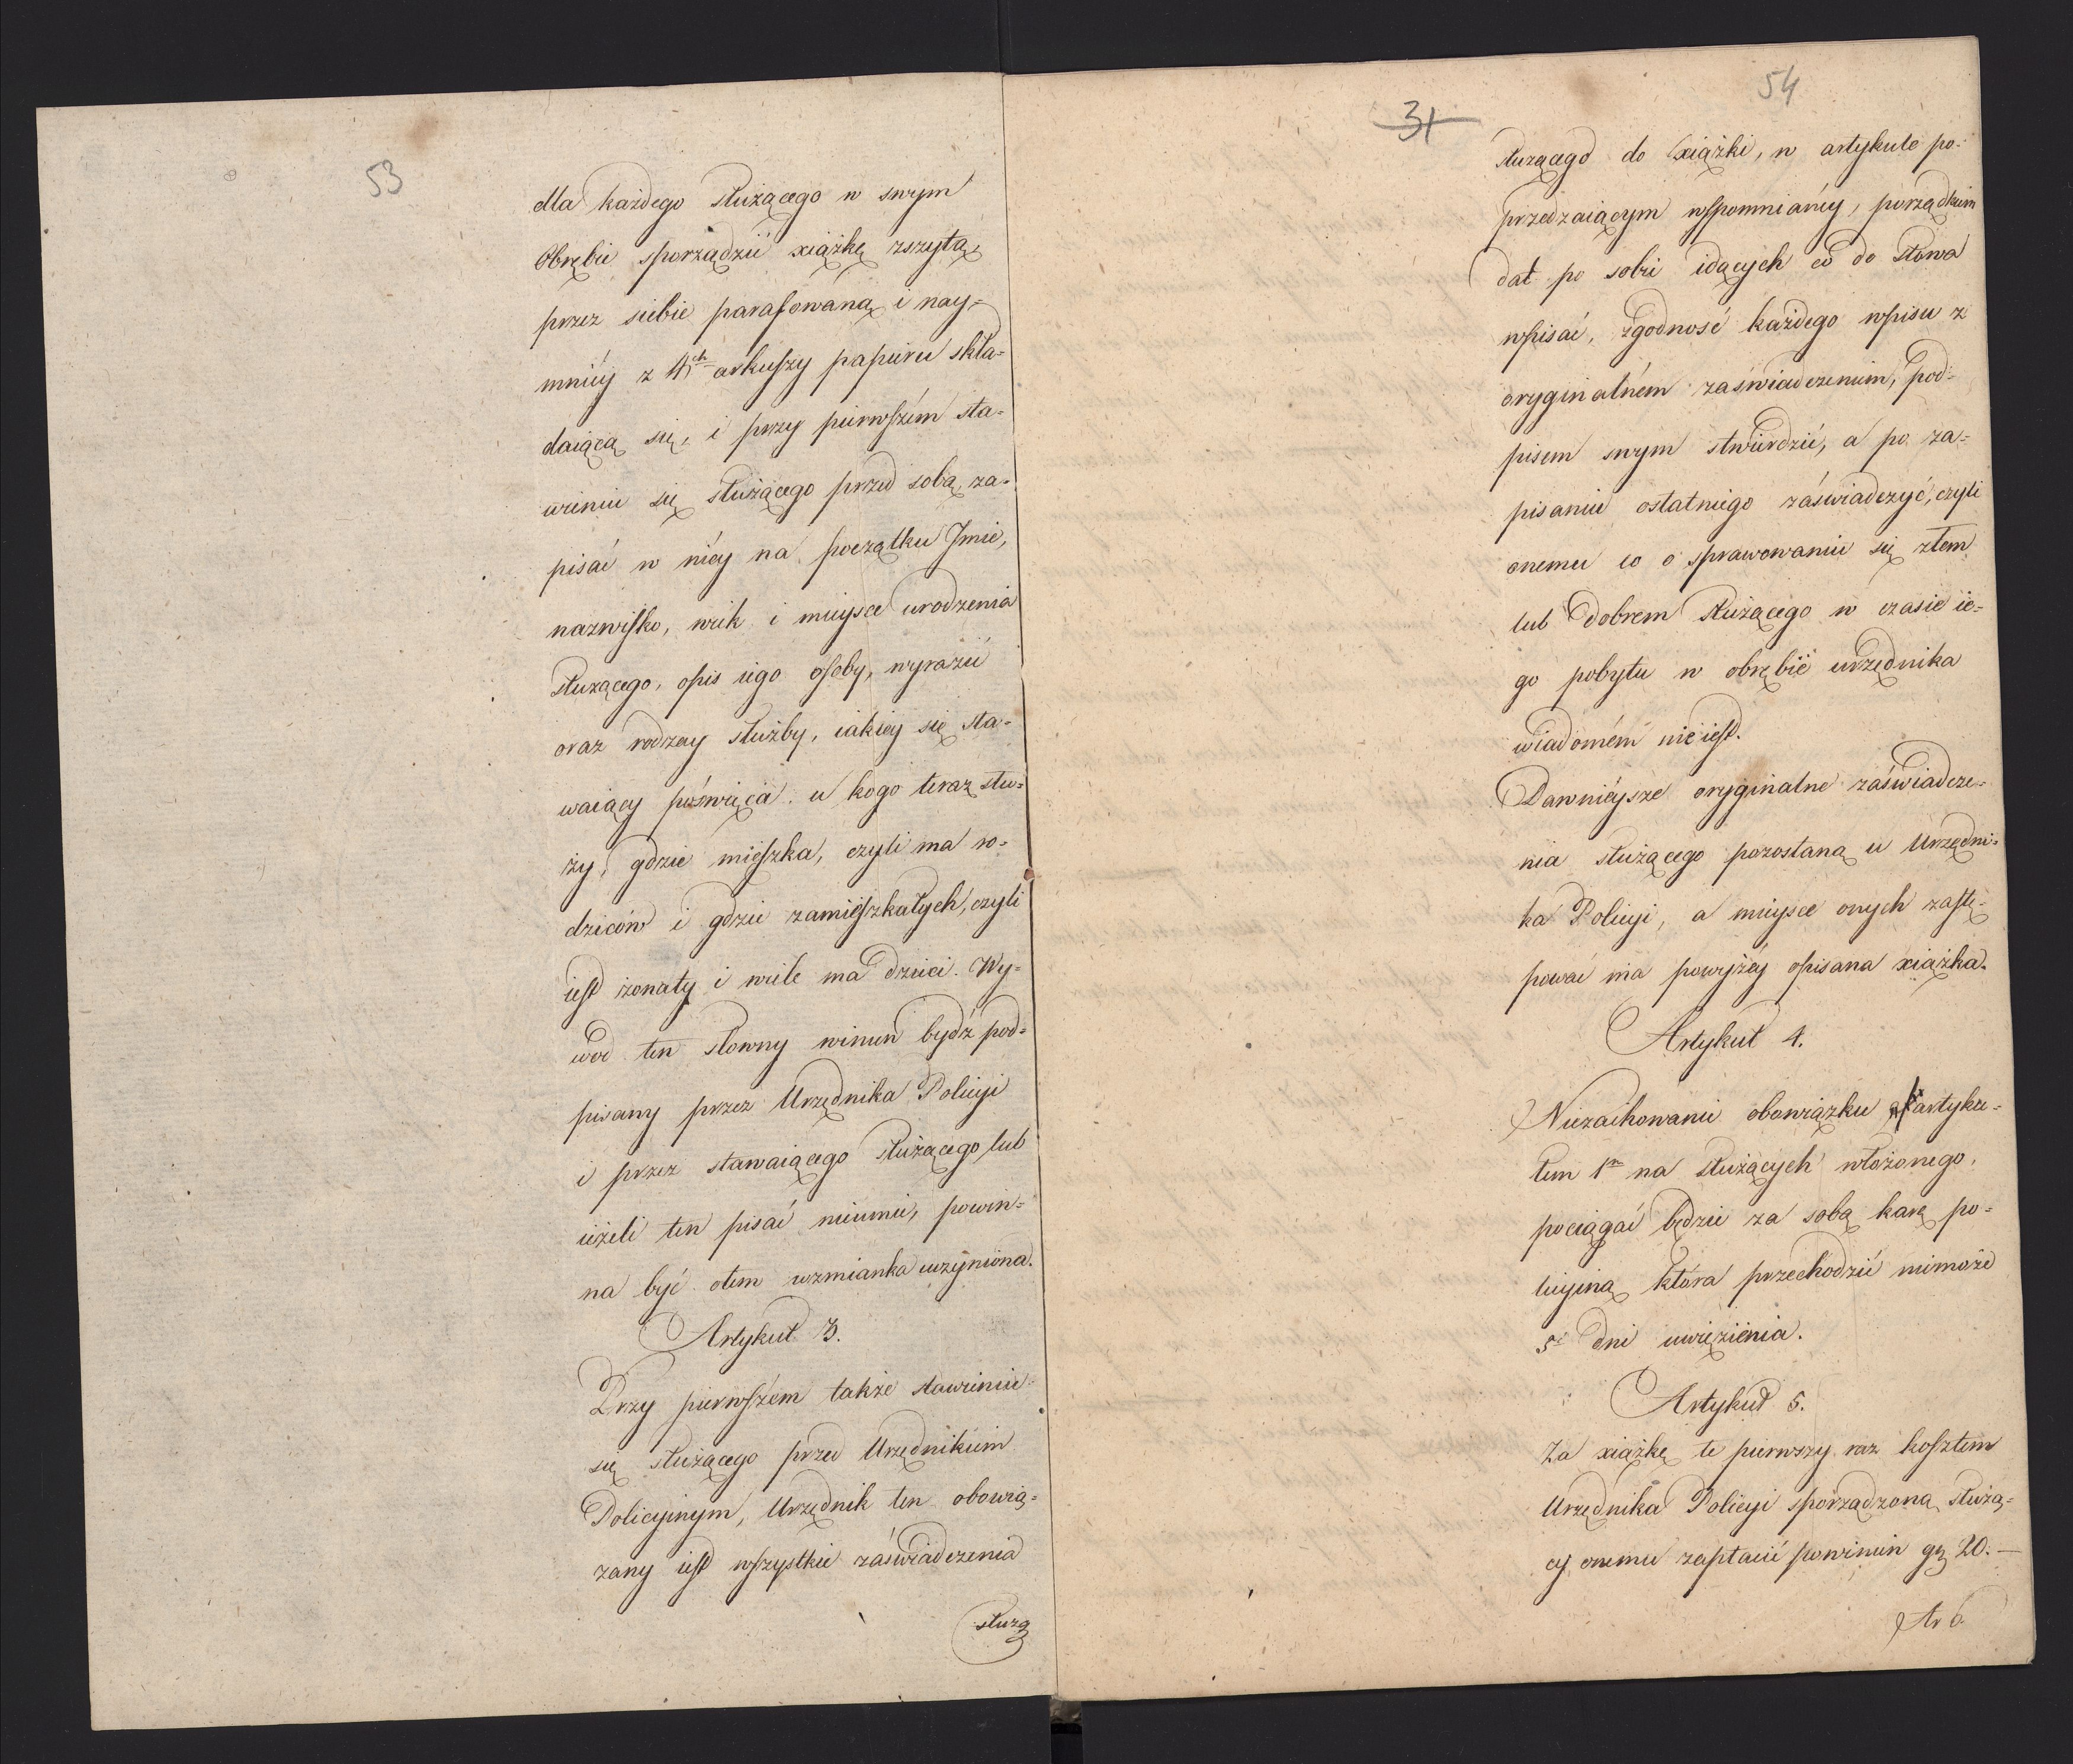 53
dla każdego służącego w swym
Obrębie sporządzić xiążkę zszytą,
przez siebie parafowaną i nay=
mniéy z 4ch arkuszy papieru skła=
daiącą się, i przy pierwszém sta=
wieniu się służącego przed sobą, za=
pisać w niéy na początku Jmie,
nazwisko, wiek i mieysce urodzenia
służącego, opis iego osoby, wyrazić
oraz rodzay służby, iakiey się sta=
waiący poświęca. u kogo teraz słu=
ży, gdzie mieszka, czyli ma ro=
dziców i gdzie zamieszkałych, czyli
iest żonaty i wiele ma dzieci. Wy=
wod ten słowny winien bydź pod=
pisany przez Urzędnika Policyi
i przez stawaiącego służącego lub
ieżeli ten pisać nieumie, powin=
na być otem wzmianka uczyniona.
Artykuł 3.
Przy pierwszem także stawieniu
się służącego przed Urzędnikiem
Policyinym, Urzędnik ten obowią=
zany iest wszystkie zaświadczenia
służą
54
31
służącego do xiążki, w artykule po=
przedzaiącym wspomnianéy, porządkiem
dat po sobie idących co do słowa
wpisać, zgodność każdego wpisu z
oryginalném zaświadczeniem, pod=
pisem swym stwierdzić, a po za=
pisaniu ostatniego zaświadczyć, czyli
onemu co o sprawowaniu się złem
lub dobrem służącego w czasie ie=
go pobytu w obrębie urzędnika
wiadomém nie iest.
Dawnieysze oryginalne zaświadcze=
nia służącego pozostaną u Urzędni=
ka Policyi, a mieysce onych zastę=
pować ma powyżéy opisana xiążka.
Artykuł 4.
Niezachowanie obowiązku artyku=
łem 1m na służących włożonego,
pociągać będzie za sobą karę po=
licyiną która przechodzić niemoże
5u dni uwięzienia.
Artykuł 5.
Za xiążkę te pierwszy raz kosztem
Urzędnika Policyi sporządzoną, służą=
cy onemu zapłacić powinien gr 20.—
Ar 6